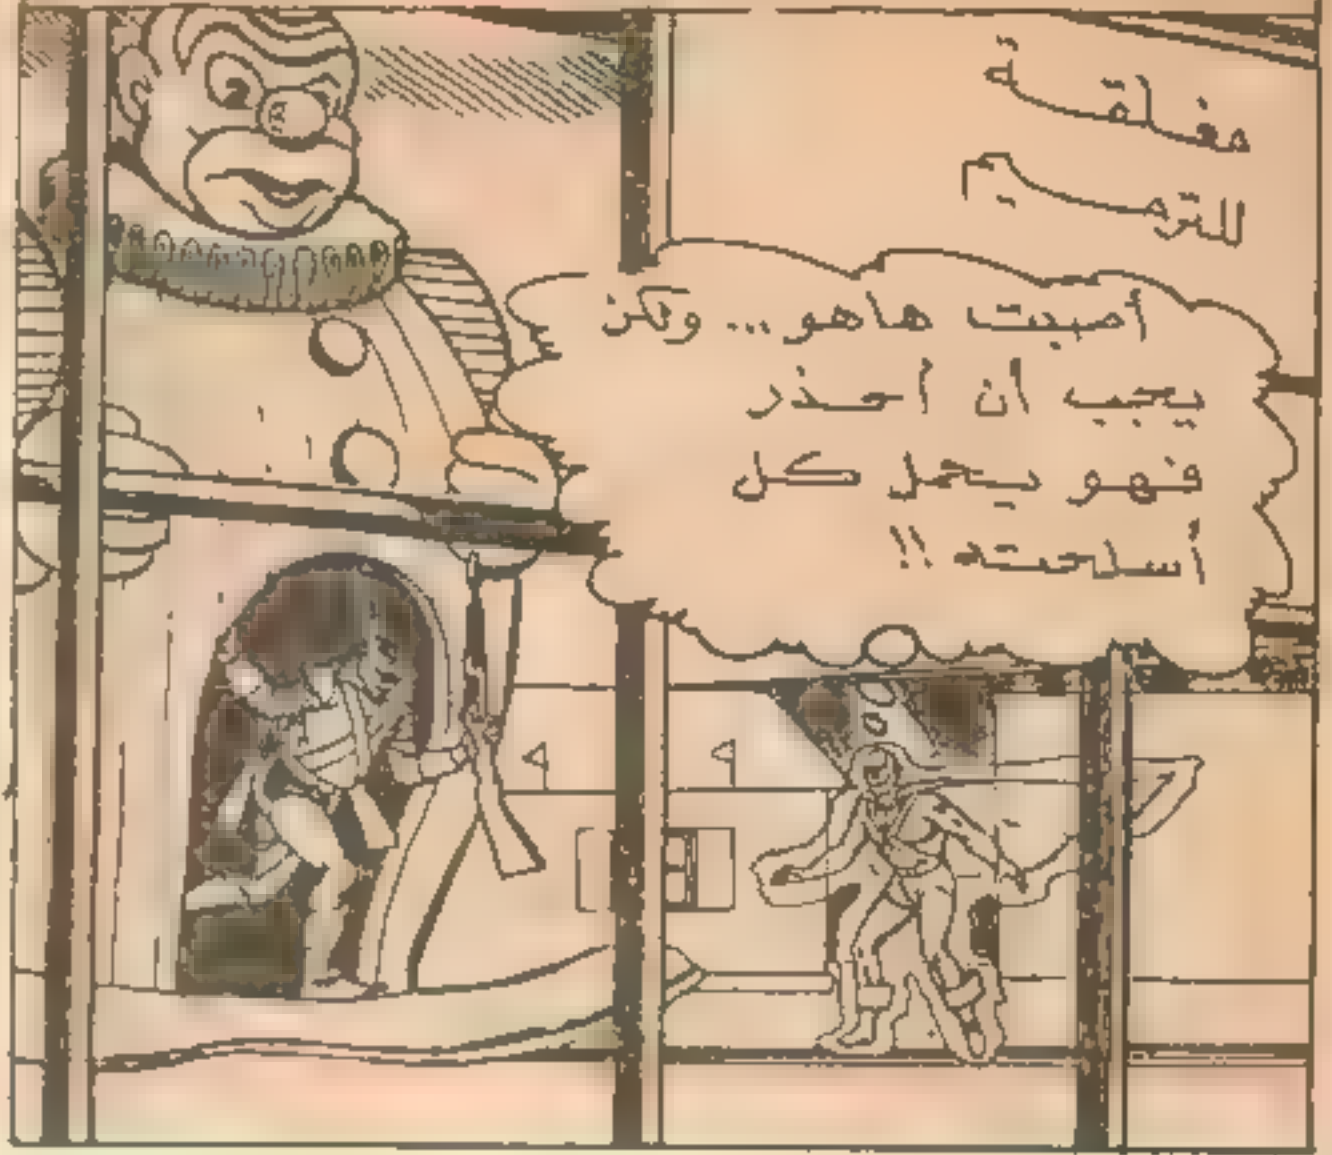 مغلقة
للترميم
أصبت هاهو... ولكن
يجب ان أحذر
فهو يحمل كل
أسلحته !!